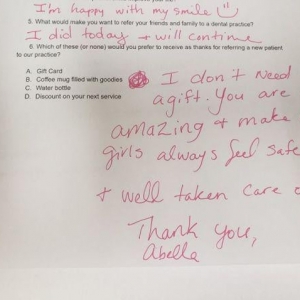 I'm happy with my smile
5. What would make you want to refer your friends and family to a dental practice?
I did today + will continue
6. Which of these (or none) would you prefer to receive as thanks for referring a new patient
to our practice?
A. Gift Card
B. Coffee mug filled with goodies
C. Water bottle
D. Discount on your next service
I don't need
a gift. You are
amazing + make
girls always feel safe
+ well taken care
Thank you,
Abella